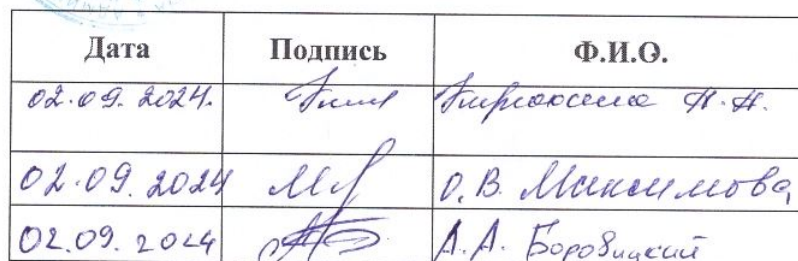 Дата Подпись Ф.И.О.
02.09.2024. Н.Н.
02.09.2024 О.В. Максимова
02.09.2024 А.А. Боровицкий